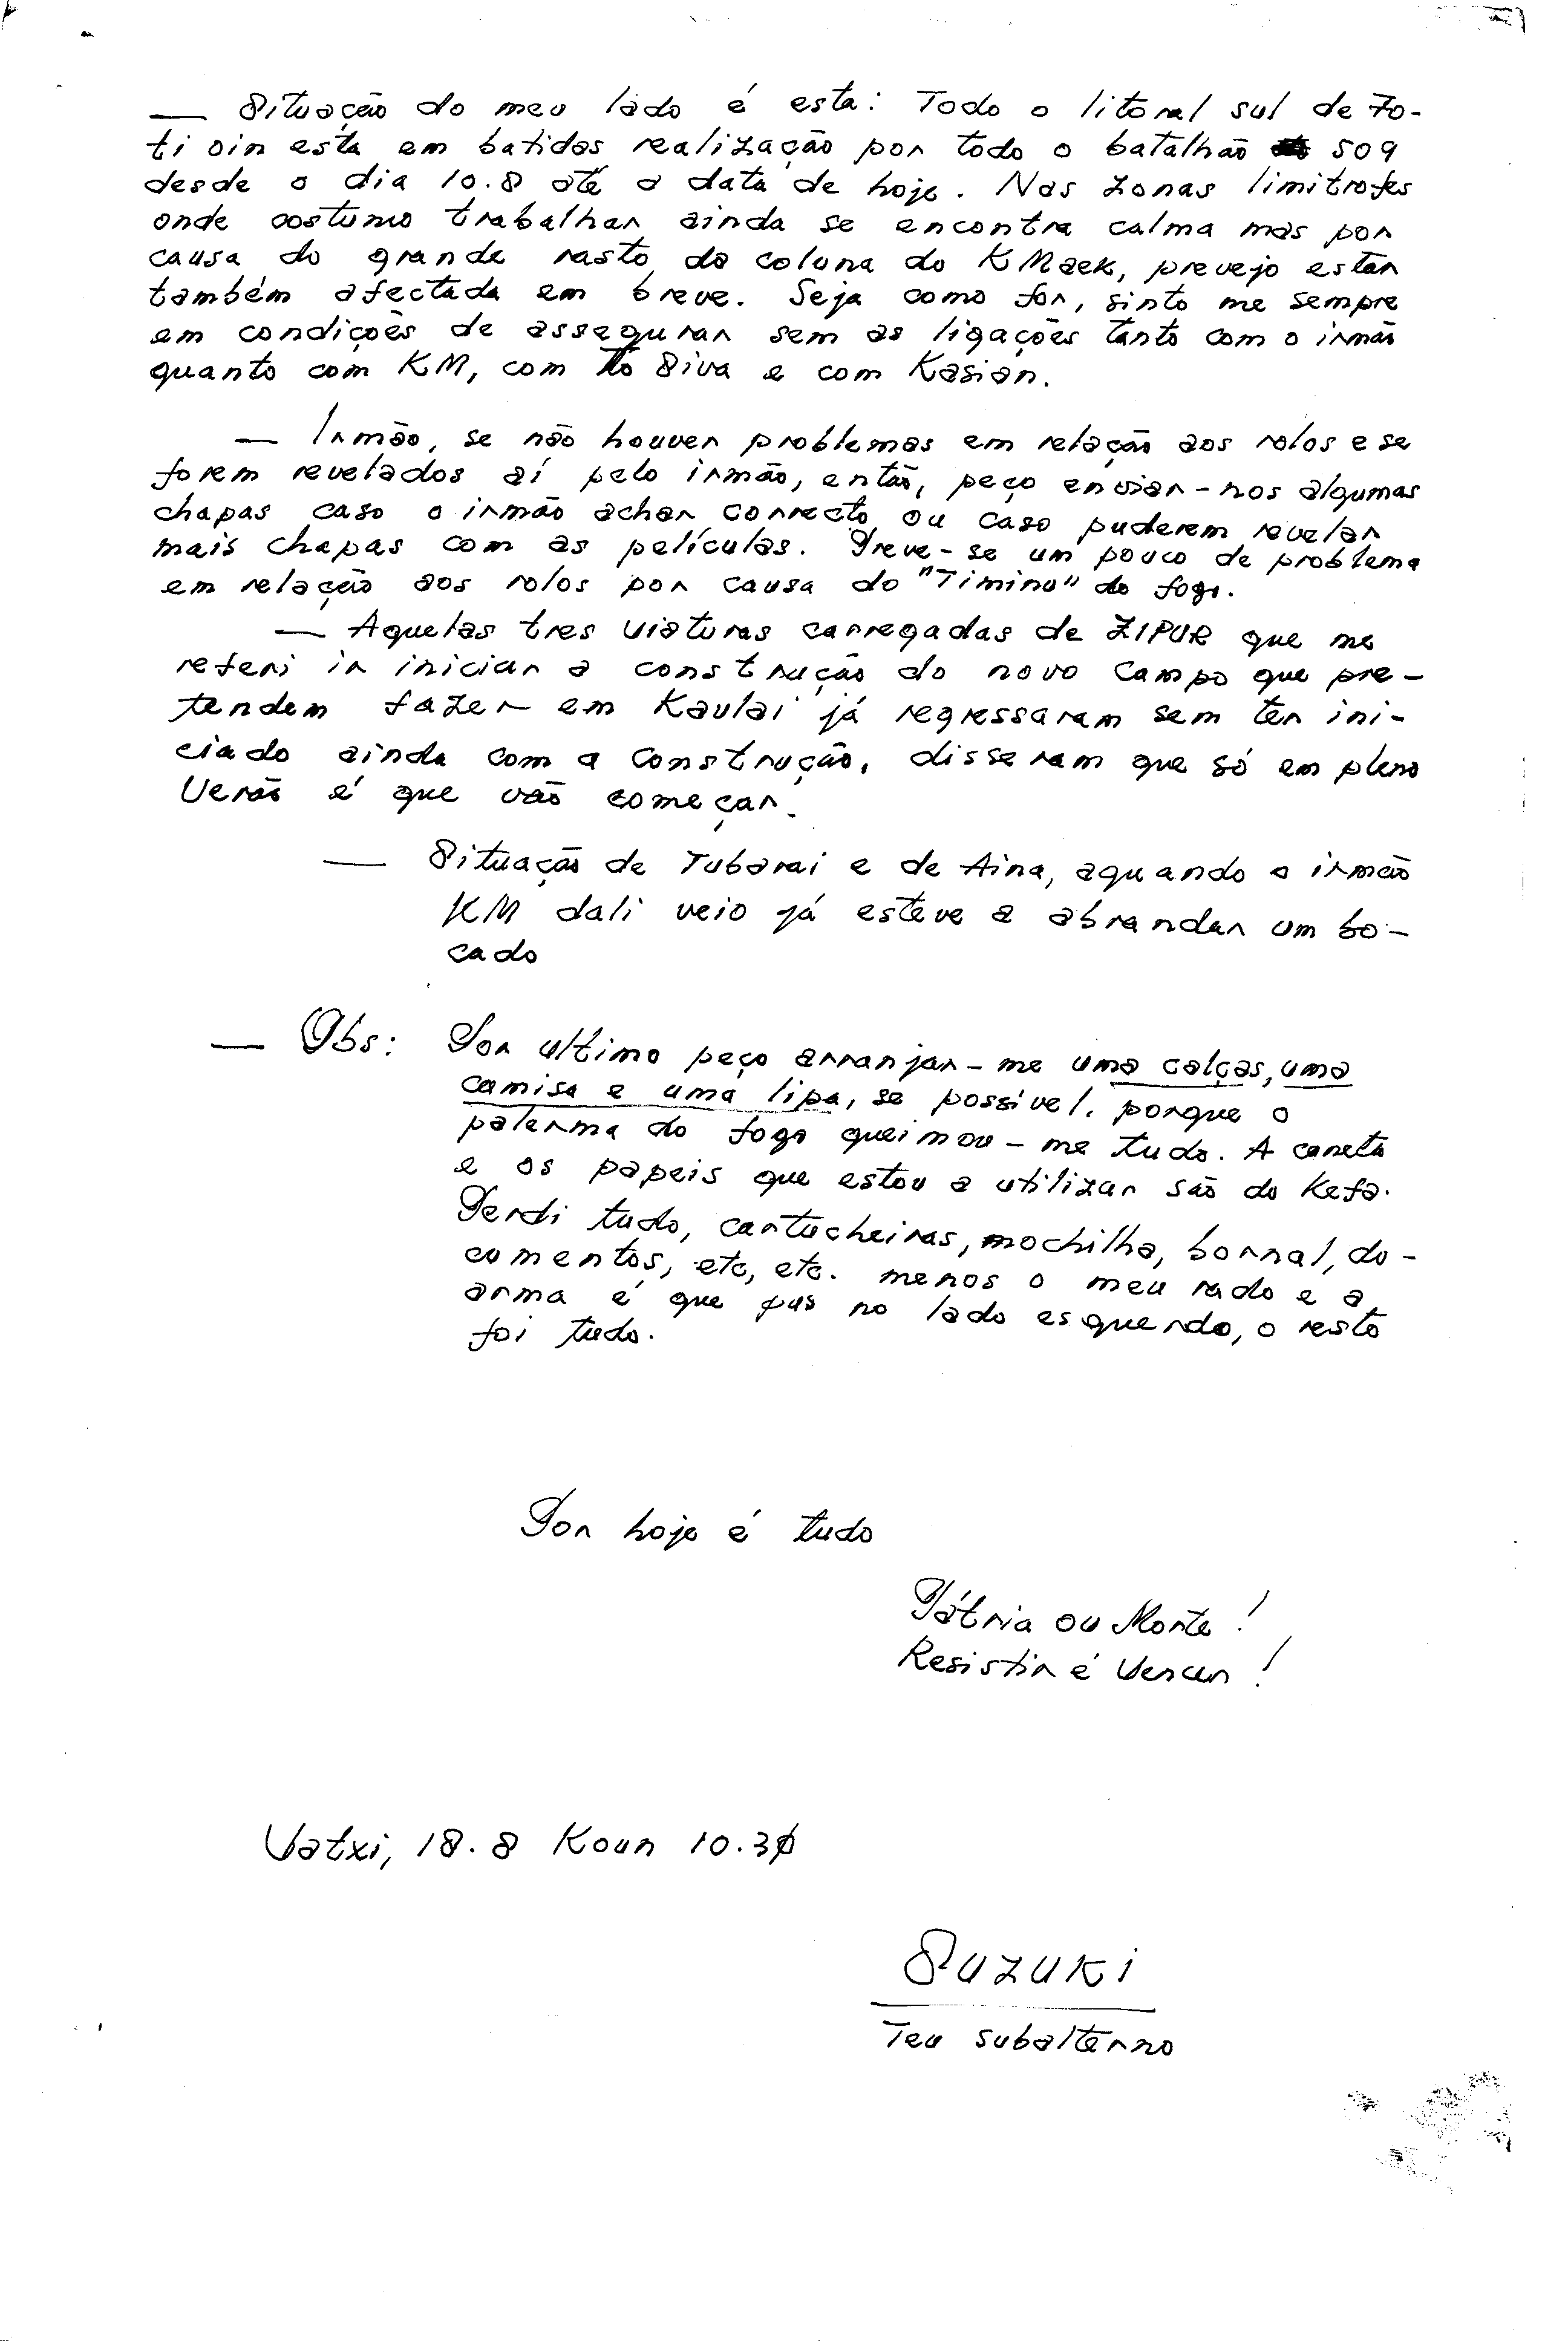 — Situação do meu lado é esta: Todo o litoral sul de Fo-
ti oin está em batidas realização por todo o batalhão 509
desde o dia 10.8 até a data de hoje. Nas zonas limitrofes
onde costumo trabalhar ainda se encontra calma mas por
causa do grande rasto da coluna do KMaek, prevejo estar
também afectada em breve. Seja como for, sinto me sempre
em condições de assegurar sem as ligações tanto com o irmão
quanto com KM, com to Siva e com Kasian.
— Irmão, se não houver problemas em relação aos rolos e se
forem revelados aí pelo irmão, então, peço enviar-nos algumas
chapas caso o irmão achar correcto ou caso puderem revelar
mais chapas com as películas. Treve-se um pouco de problema
em relação aos rolos por causa do "Timinu" do fogo.
— Aquelas tres viaturas carregadas de ZIPUR que me
referi ir iniciar a construção do novo campo que pre-
tendem fazer em Kaulai já regressaram sem ter ini-
ciado ainda com a construção, disseram que só em pleno
Verão é que vão começar.
— Situação de Tubarai e de Aina, aquando o irmão
KM dali veio já esteve a abrandar um bo-
cado
— Obs: Por ultimo peço arranjar-me uma calças, uma
camisa e uma lipa, se possível, porque o
palerma do fogo queimou-me tudo. A caneta
e os papeis que estou a utilizar são do Kefa.
Perdi tudo, cartucheiras, mochilha, bornal, do-
cumentos, etc, etc. menos o meu rado e a
arma é que pus no lado esquerdo, o resto
foi tudo.
Por hoje é tudo
Pátria ou Morte!
Resistir é Vencer!
Vatxi, 18.8 Koun 10.30
SUZUKI
Teu subalterno